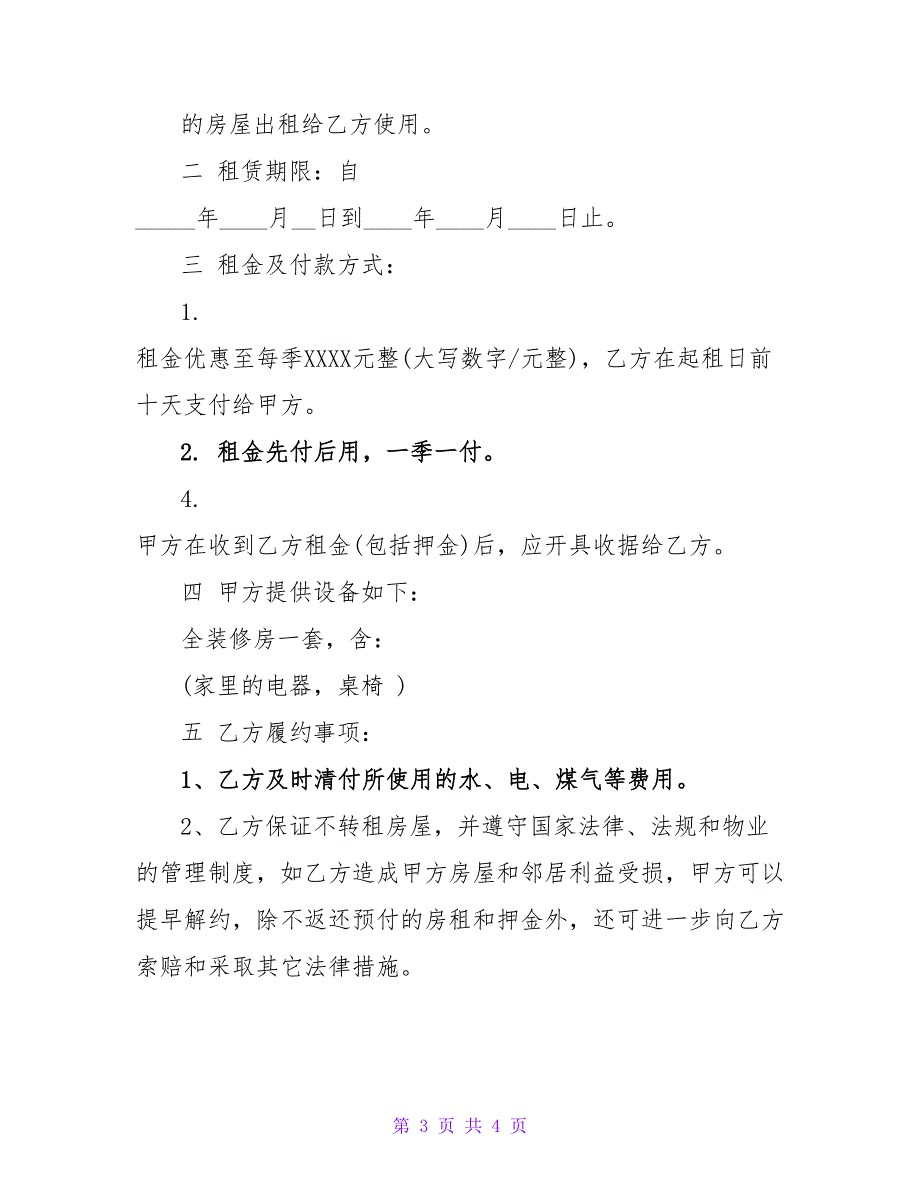 的房屋出租给乙方使用。
二 租赁期限：自
_____年____月__日到____年____月____日止。
三 租金及付款方式：
1.
租金优惠至每季XXXX元整(大写数字/元整)，乙方在起租日前
十天支付给甲方。
2. 租金先付后用，一季一付。
4.
甲方在收到乙方租金(包括押金)后，应开具收据给乙方。
四 甲方提供设备如下：
全装修房一套，含：
(家里的电器，桌椅 )
五 乙方履约事项：
1、乙方及时清付所使用的水、电、煤气等费用。
2、乙方保证不转租房屋，并遵守国家法律、法规和物业
的管理制度，如乙方造成甲方房屋和邻居利益受损，甲方可以
提早解约，除不返还预付的房租和押金外，还可进一步向乙方
索赔和采取其它法律措施。
第 3 页 共 4 页